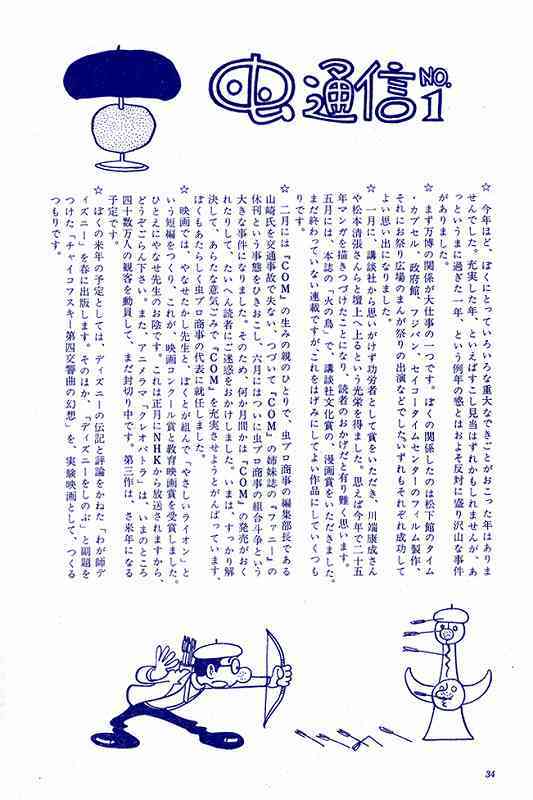 虫通信 NO.1
☆ 今年ほど、ぼくにとっていろいろな重大なできごとがおこった年はありま
せんでした。充実した年、といえばすこし見当はずれかもしれませんが、あ
っというまに過ぎた一年、という例年の感とはおよそ反対に盛り沢山な事件
がありました。
☆ まず万博の関係が大仕事の一つです。ぼくの関係したのは松下館のタイム
・カプセル、政府館、フジパン、セイコータイムセンターのフィルム製作、
それにお祭り広場のまんが祭りの出演などでした。いずれもそれぞれ成功して
よい思い出になりました。
☆ 一月に、講談社から思いがけず功労者として賞をいただき、川端康成さん
や松本清張さんと壇上へ上るという光栄を得ました。思えば今年で二十五
年マンガを描きつづけたことになり、読者のおかげだと有り難く思います。
五月には、本誌の「火の鳥」で、講談社文化賞の、漫画賞をいただきました。
まだ終わっていない連載ですが、これをはげみにしてよい作品にしていくつも
りです。
☆ 二月には『COM』の生みの親のひとりで、虫プロ商事の編集部長である
山崎氏を交通事故で失ない、つづいて『COM』の姉妹誌の『ファニー』の
休刊という事態をひきおこし、六月にはついに虫プロ商事の組合斗争という
大きな事件になりました。そのため、何か月間かは『COM』の発売がおく
れたりして、たいへん読者にご迷惑をおかけしました。いまは、すっかり解
決して、あらたな意気ごみで『COM』を充実させようとがんばっています。
ぼくもあたらしく虫プロ商事の代表に就任しました。
☆ 映画では、やなせたかし先生と、ぼくとが組んで「やさしいライオン」と
いう短編をつくり、これが、映画コンクール賞と教育映画賞を受賞しました。
ひとえにやなせ先生のお陰です。これは正月にNHKから放送されますから、
どうぞごらん下さい。また、アニメラマ「クレオパトラ」は、いまのところ
四十数万人の観客を動員して、まだ封切り中です。第三作は、さ来年になる
予定です。
☆ ぼくの来年の予定としては、ディズニーの伝記と評論をかねた「わが師デ
ィズニー」を春に出版します。そのほか、「ディズニーをしのぶ」と副題を
つけた「チャイコフスキー第四交響曲の幻想」を、実験映画として、つくる
つもりです。
34